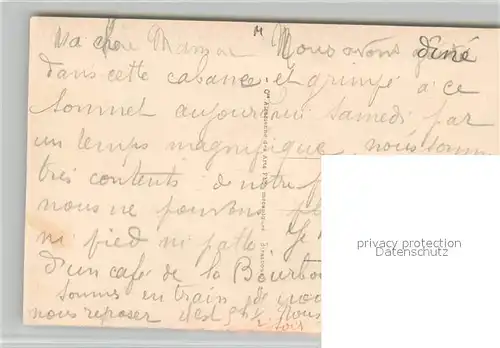 Ma chère Maman Nous avons dîné
dans cette cabane et grimpé à ce
sommet aujourd'hui samedi par
un temps magnifique nous somm
très contents de notre
nous ne pouvons
ni pied ni patte Je
d'un café de la Bourbo
sommes en train de
nous reposer il est 5h ½ Nous
soir
privacy protection
Datenschutz